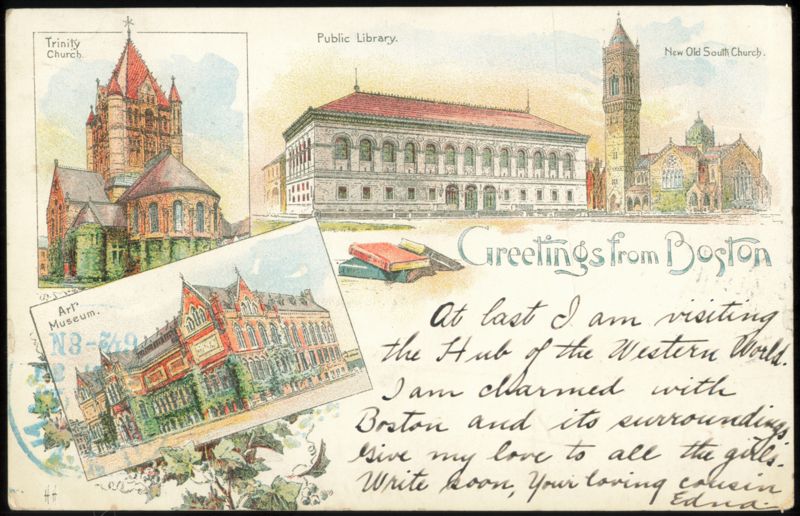 Trinity
Church.
Public Library.
New Old South Church.
Greetings from Boston
Art
Museum.
At last I am visiting
the Hub of the Western World.
I am charmed with
Boston and its surroundings.
Give my love to all the girls.
Write soon, Your loving cousin
Edna.
HH